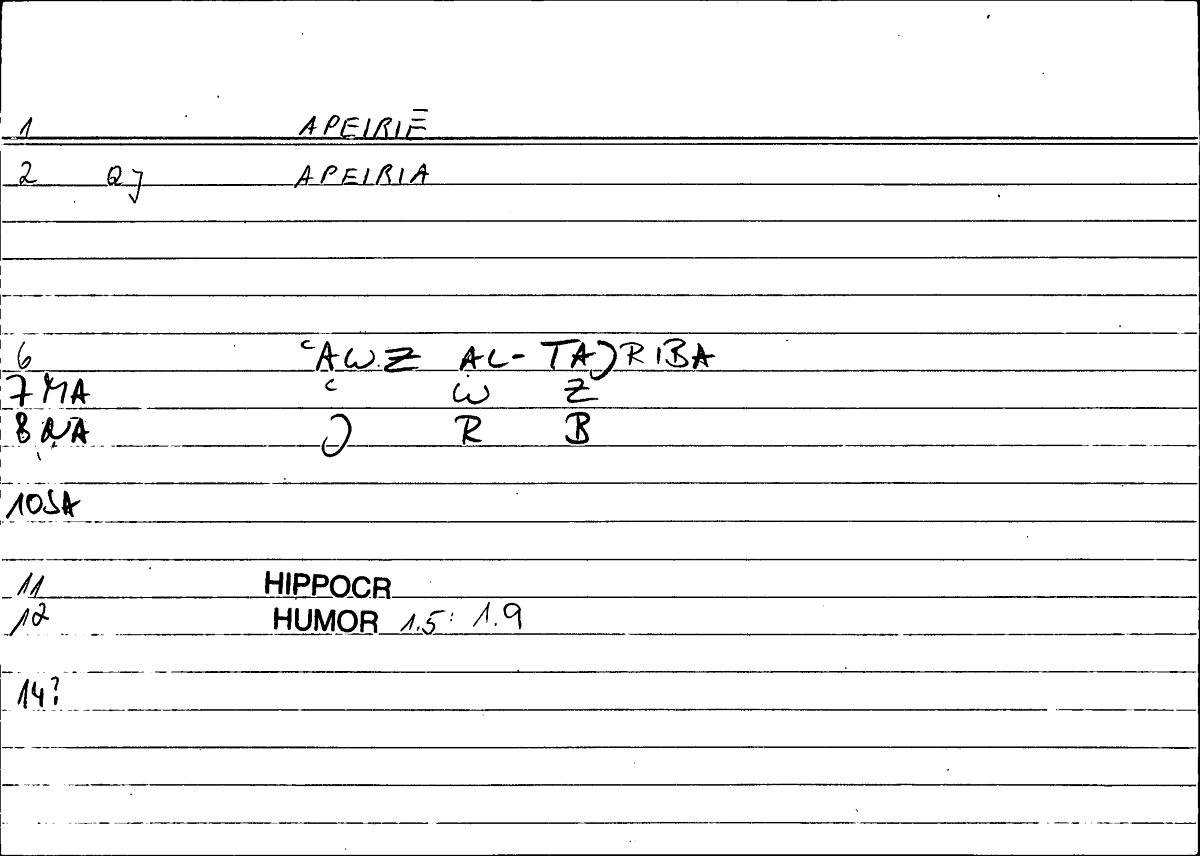 1 APEIRIĒ
2 QJ APEIRIA
6 ʿAWZ AL-TAJRIBA
7 MA ʿ W Z
8 NA J R B
10 SA
11 HIPPOCR
12 HUMOR 1.5: 1.9
14?